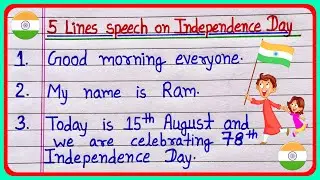 5 Lines speech on Independence Day
1. Good morning everyone.
2. My name is Ram.
3. Today is 15th August and
we are celebrating 78th
Independence Day.